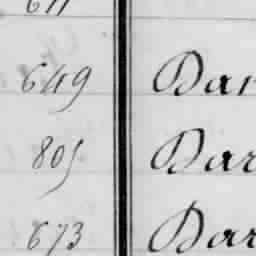 649 Dar
805 Dar
673 Dar